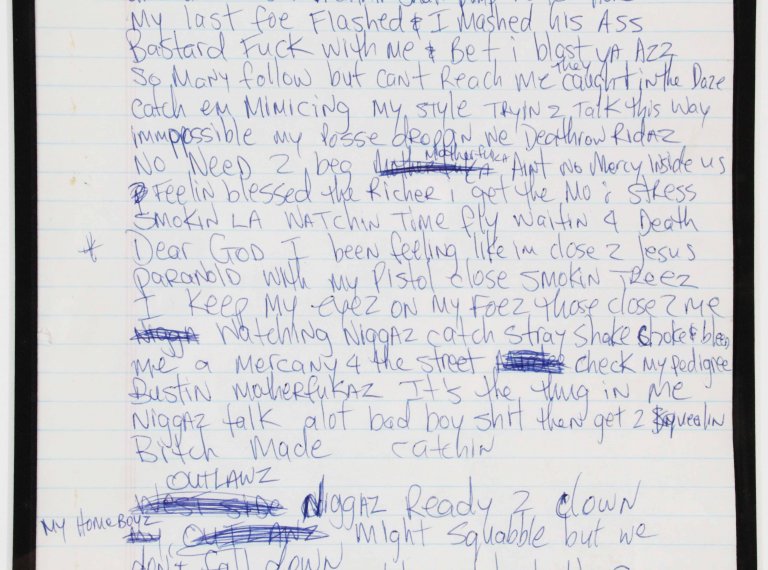 My last foe Flashed & I Mashed his Ass
Bastard Fuck with me & Bet i blast ya Azz
So Many follow but can't Reach Me they caught in the Daze
catch em Mimicing my style Tryin 2 Talk this way
immpossible my Posse droppin we Deathrow Ridaz
No Need 2 beg Motherfuka Aint no Mercy Inside us
Feelin blessed the Richer i get the Mo i Stress
Smokin LA Watchin Time fly Waitin 4 Death
* Dear God I been feeling like im close 2 Jesus
paranoid with my Pistol close smokin Treez
I keep my eyez on my Foez those close 2 me
Watching Niggaz catch stray shake choke & bleed
me a mercany 4 the street check my pedigree
Bustin Motherfukaz It's the thug in me
Niggaz talk alot bad boy shit then get 2 Squeelin
Bitch Made catchin
OUTLAWZ
Niggaz Ready 2 clown
My HomeBoyz might squabble but we
don't fall down